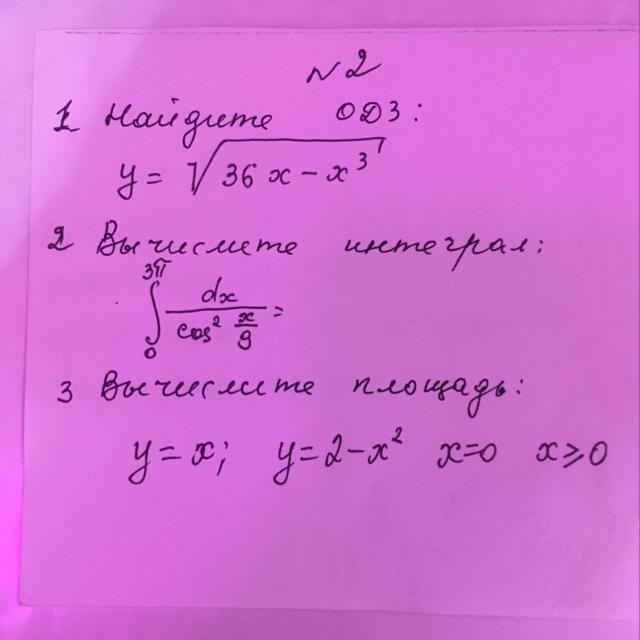 №2
1 Найдите ОДЗ:
y = √(36x − x³)
2 Вычислите интеграл:
∫₀^3π dx / cos² x/9 =
3 Вычислите площадь:
y = x; y = 2 − x² x=0 x⩾0